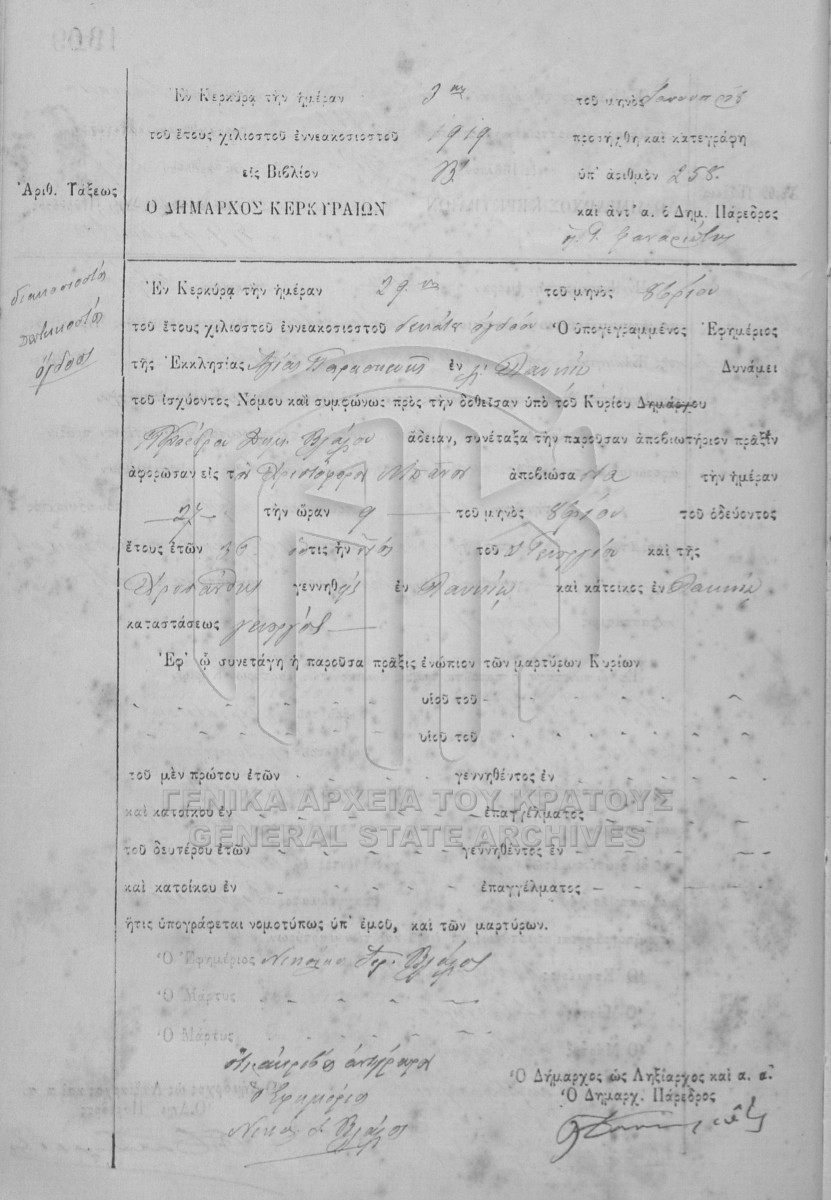 Ἐν Κερκύρᾳ τὴν ἡμέραν 3ην τοῦ μηνὸς
τοῦ ἔτους χιλιοστοῦ ἐννεακοσιοστοῦ 1919 προσήχθη καὶ κατεγράφη
εἰς Βιβλίον Β' ὑπ' ἀριθμὸν 258.
Ἀριθ. Τάξεως
Ο ΔΗΜΑΡΧΟΣ ΚΕΡΚΥΡΑΙΩΝ καὶ ἀντ' α. ὁ Δημ. Πάρεδρος
διακοσιοστὸς
πεντηκοστὸς
ὄγδοος
Ἐν Κερκύρᾳ τὴν ἡμέραν 29ην τοῦ μηνὸς 8βρίου
τοῦ ἔτους χιλιοστοῦ ἐννεακοσιοστοῦ δεκάτου ὀγδόου Ὁ ὑπογεγραμμένος Ἐφημέριος
τῆς Ἐκκλησίας Ἁγίας Παρασκευῆς ἐν Δυνάμει
τοῦ ἰσχύοντος Νόμου καὶ συμφώνως πρὸς τὴν δοθεῖσαν ὑπὸ τοῦ Κυρίου Δημάρχου
Προέδρου ἄδειαν, συνέταξα τὴν παροῦσαν ἀποβιωτήριον πρᾶξιν
ἀφορῶσαν εἰς τὸν Χριστόφορον ἀποβιώσαντα τὴν ἡμέραν
27 τὴν ὥραν 9 τοῦ μηνὸς 8βρίου τοῦ ὁδεύοντος
ἔτους ἐτῶν 36 ὅστις ἦν υἱὸς τοῦ Γεωργίου καὶ τῆς
γεννηθεὶς ἐν καὶ κάτοικος ἐν
καταστάσεως γεωργὸς
Ἐφ' ᾧ συνετάγη ἡ παροῦσα πρᾶξις ἐνώπιον τῶν μαρτύρων Κυρίων
υἱοῦ τοῦ
υἱοῦ τοῦ
τοῦ μὲν πρώτου ἐτῶν γεννηθέντος ἐν
ΓΕΝΙΚΑ ΑΡΧΕΙΑ ΤΟΥ ΚΡΑΤΟΥΣ
καὶ κατοίκου ἐν ἐπαγγέλματος
GENERAL STATE ARCHIVES
τοῦ δευτέρου ἐτῶν γεννηθέντος ἐν
καὶ κατοίκου ἐν ἐπαγγέλματος
ἥτις ὑπογράφεται νομοτύπως ὑπ' ἐμοῦ, καὶ τῶν μαρτύρων.
Ὁ Ἐφημέριος
Ὁ Μάρτυς
Ὁ Μάρτυς
Ὁ Δήμαρχος ὡς Ληξίαρχος καὶ α. α.
Ὁ Δημαρχ. Πάρεδρος
Ὁ Ἐφημέριος